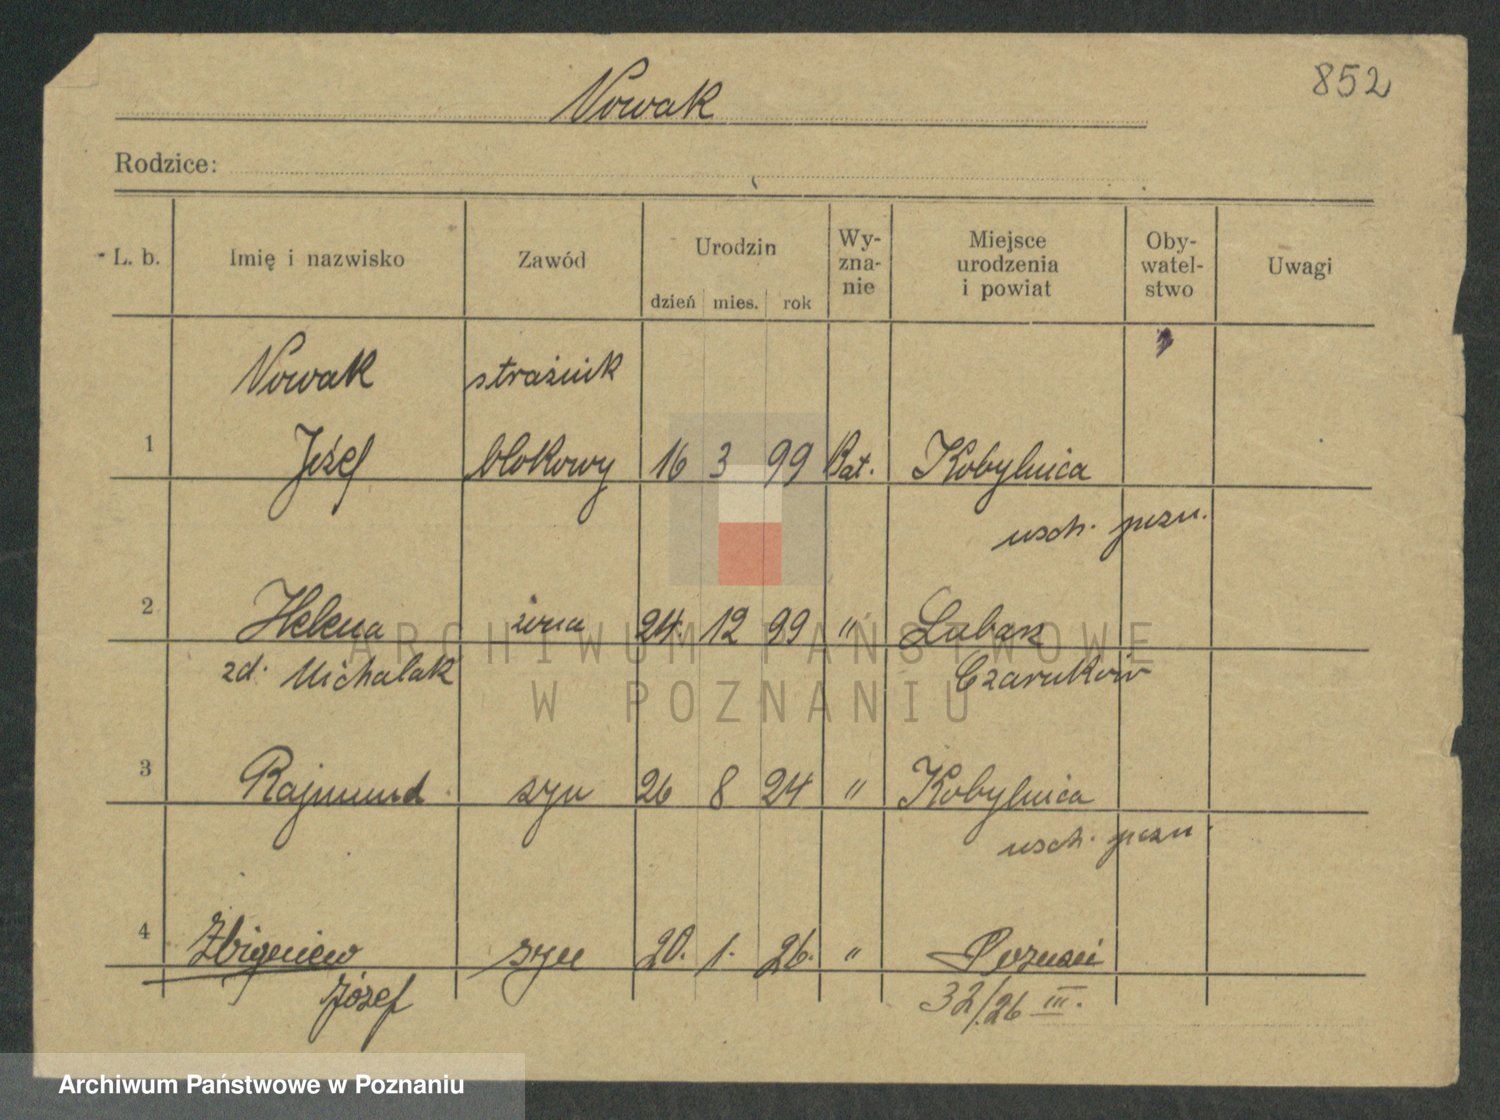 852
Nowak
Rodzice:
L. b. Imię i nazwisko Zawód Urodzin dzień mies. rok Wy-zna-nie Miejsce urodzenia i powiat Oby-watel-stwo Uwagi
Nowak strażnik
1 Józef blokowy 16 3 99 Kat. Kobylnica
wsch. pozn.
2 Helena żona 24. 12 99 " Lubasz
zd. Michalak Czarnków
3 Rajmund syn 26 8 24 " Kobylnica
wsch. pozn.
4 Zbigniew syn 20. 1. 26. " Poznań
Józef 32/26 III.
ARCHIWUM PAŃSTWOWE
W POZNANIU
Archiwum Państwowe w Poznaniu